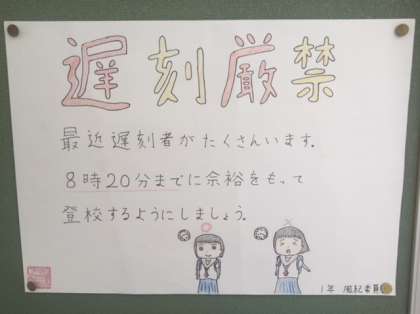 遅刻厳禁
最近遅刻者がたくさんいます.
8時20分までに余裕をもって
登校するようにしましょう.
1年 風紀委員